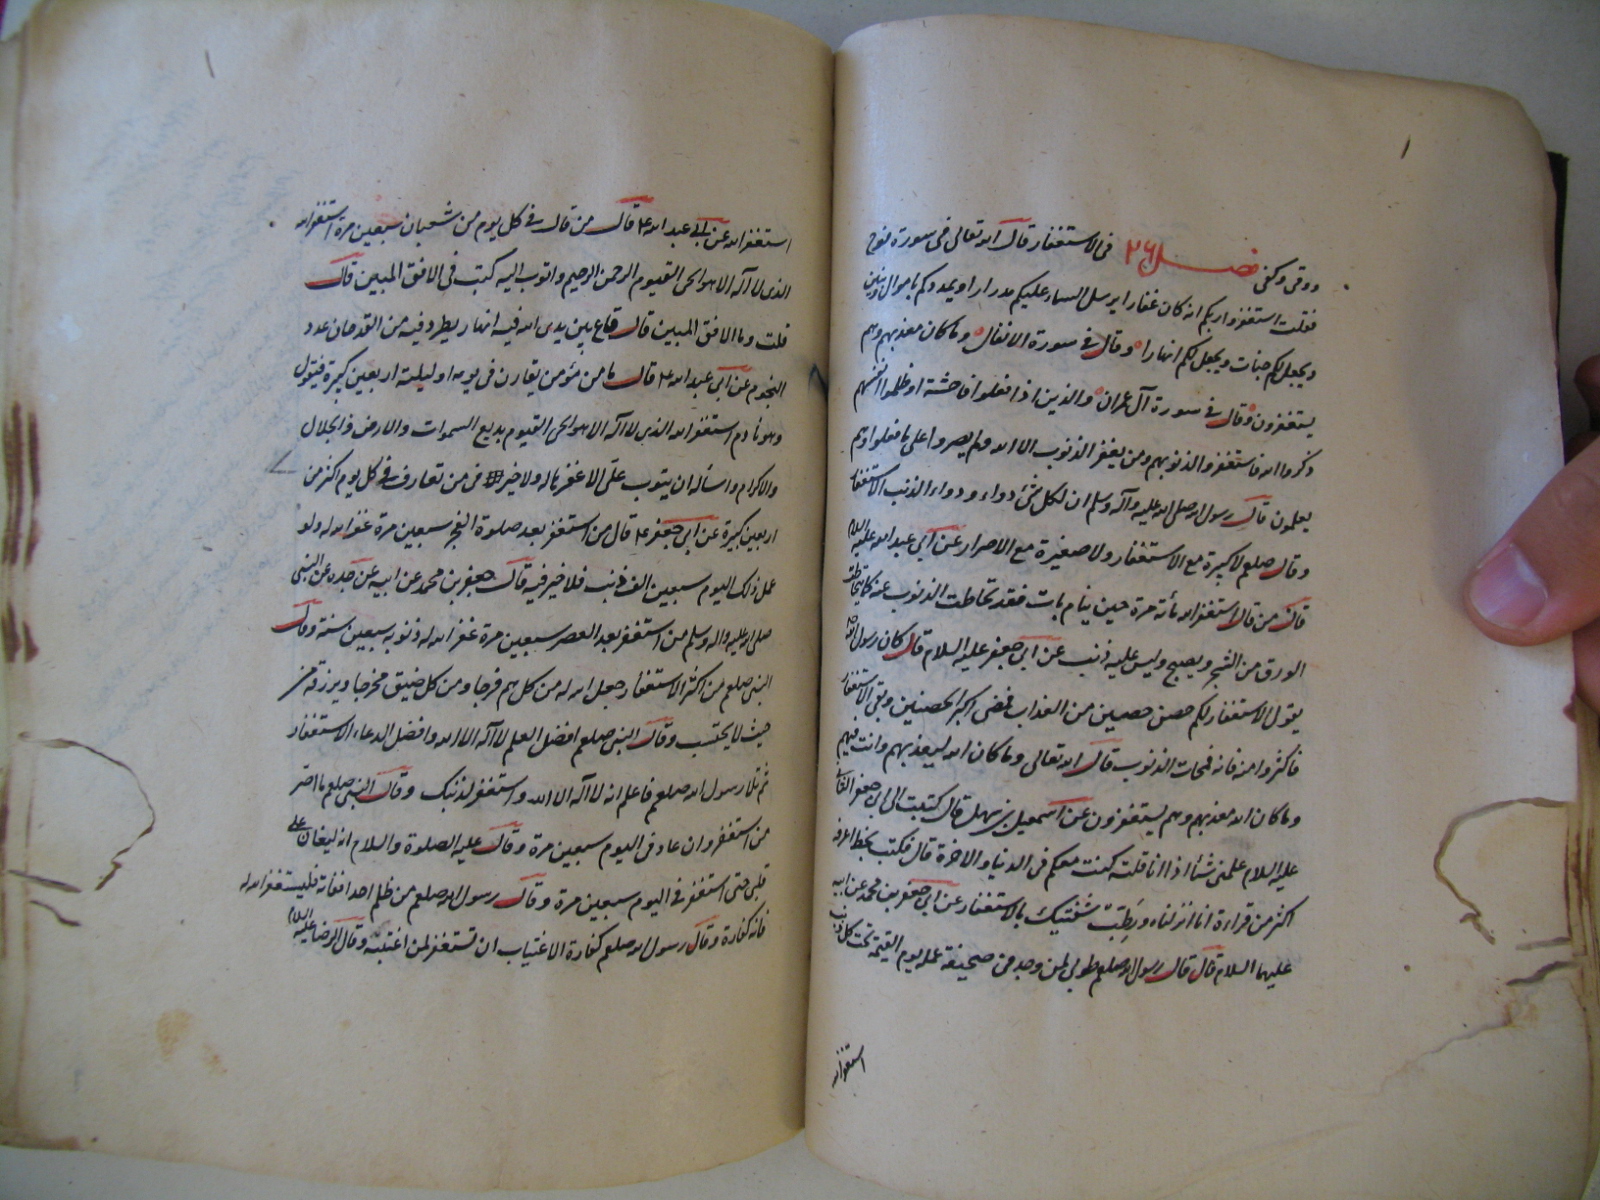 ووقى وكفى فصل ٢٦ فى الاستغفار قال الله تعالى فى سورة نوح
فقلت استغفروا ربكم انه كان غفارا يرسل السماء عليكم مدرارا ويمددكم باموال وبنين
ويجعل لكم جنات ويجعل لكم انهارا وقال فى سورة الانفال وما كان معذبهم وهم
يستغفرون وقال فى سورة آل عمران والذين اذا فعلوا فاحشة او ظلموا انفسهم
ذكروا الله فاستغفروا لذنوبهم ومن يغفر الذنوب الا الله ولم يصروا على ما فعلوا وهم
يعلمون قال رسول الله صلى الله عليه وآله وسلم ان لكل شئ دواء ودواء الذنب الاستغفار
وقال صلعم لا كبيرة مع الاستغفار ولا صغيرة مع الاصرار عن ابى عبد الله عليه السلام
قال من قال استغفر الله مأة مرة حين ينام بات فقد تحاطت الذنوب عنه كما يتحاط
الورق من الشجر ويصبح وليس عليه ذنب عن ابى جعفر عليه السلام قال كان رسول الله
يقول الاستغفار لكم حصن حصين من العذاب فمضى اكبر الحصنين وبقى الاستغفار
فاكثروا منه فانه ممحات الذنوب قال الله تعالى وما كان الله ليعذبهم وانت فيهم
وما كان الله معذبهم وهم يستغفرون عن اسمعيل بن سهل قال كتبت الى ابى جعفر الثانى
عليه السلام علمنى شئا اذا انا قلته كنت معكم فى الدنيا والاخرة قال فكتب بخطه اعرفه
اكثر من قراءة انا انزلناه ورطب شفتيك بالاستغفار عن ابى جعفر بن محمد عن ابيه
عليهما السلام قال قال رسول الله صلعم طوبى لمن وجد فى صحيفة عمله يوم القيمة تحت كل ذنب
استغفر الله
استغفر الله عن ابى عبد الله ع قال من قال فى كل يوم من شعبان سبعين مرة استغفر الله
الذى لا آله الا هو الحى القيوم الرحمن الرحيم واتوب اليه كتب فى الافق المبين قال
قلت وما الافق المبين قال قاع بين يدى الله فيه انهار يطرد فيه من القدحان عدد
النجوم عن ابى عبد الله ع قال ما من مؤمن يقارف فى يومه او ليلته اربعين كبيرة فيقول
وهو نادم استغفر الله الذى لا آله الا هو الحى القيوم بديع السموات والارض ذا الجلال
والاكرام واسأله ان يتوب على الا غفر ما له ولا خير فى من تعارف فى كل يوم اكثر من
اربعين كبيرة عن ابى جعفر ع قال من استغفر بعد صلوة الفجر سبعين مرة غفر الله له ولو
عمل ذلك اليوم سبعين الف ذنب فلا خير فيه قال جعفر بن محمد عن ابيه عن جده عن النبى
صلى الله عليه واله وسلم من استغفر بعد العصر سبعين مرة غفر الله له ذنوبه سبعين سنة وقال
النبى صلعم من اكثر الاستغفار جعل الله له من كل هم فرجا ومن كل ضيق مخرجا ويرزقه من
حيث لا يحتسب وقال النبى صلعم افضل العلم لا آله الا الله وافضل الدعاء الاستغفار
ثم تلا رسول الله صلعم فاعلم انه لا آله الا الله واستغفر لذنبك وقال النبى صلعم ما اصر
من استغفر وان عاد فى اليوم سبعين مرة وقال عليه الصلوة والسلام انه ليغان على
قلبى حتى استغفر فى اليوم سبعين مرة وقال رسول الله صلعم من ظلم احدا ففاته فليستغفر الله له
فانه كفارة وقال رسول الله صلعم كفارة الاغتياب ان تستغفر لمن اغتبته وقال الرضا عليه السلام